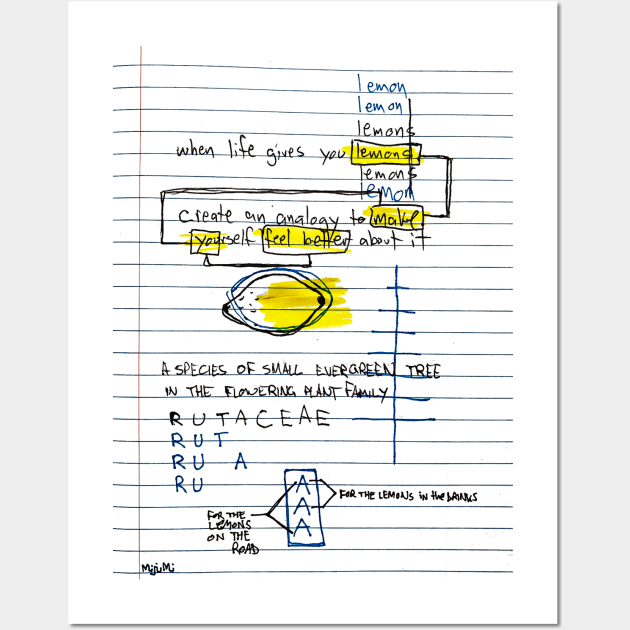 lemon
lemon
lemons
when life gives you lemons
lemons
lemon
create an analogy to make
yourself feel better about it
A SPECIES OF SMALL EVERGREEN TREE
IN THE FLOWERING PLANT FAMILY
RUTACEAE
RUT
RU A
RU
A
A
A
FOR THE LEMONS IN THE DRINKS
FOR THE
LEMONS
ON THE
ROAD
MijuMi